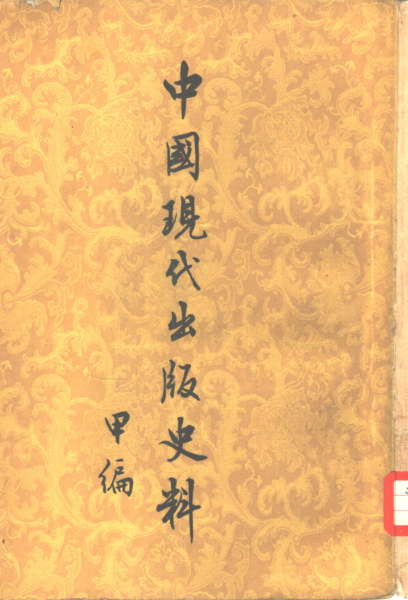 中國現代出版史料
甲編